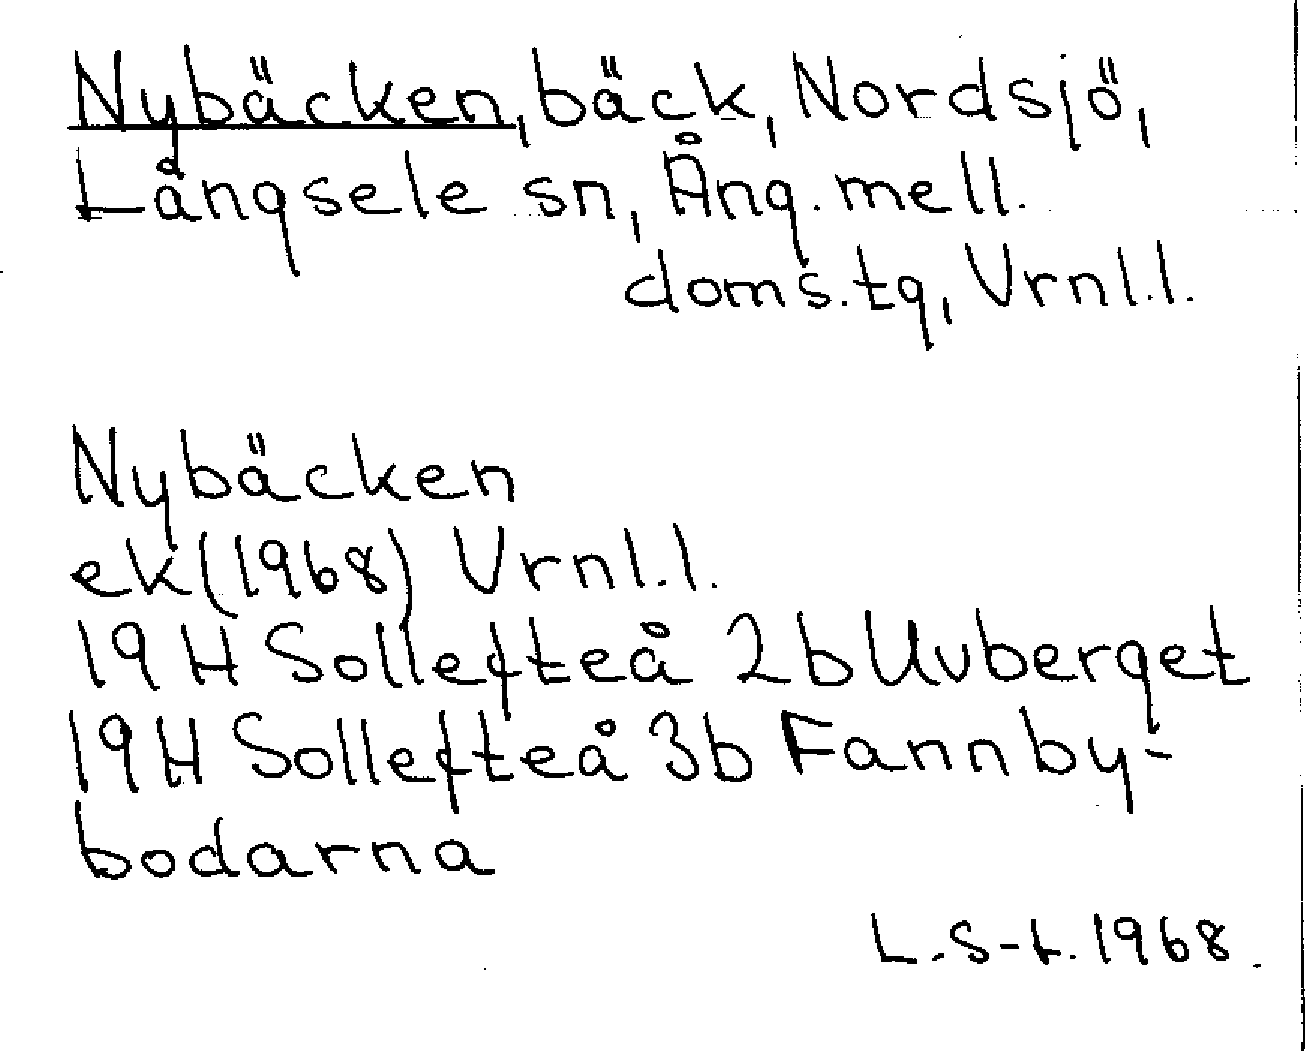 Nybäcken, bäck, Nordsjö,
Långsele sn, Ång. mell.
doms. tg, Vrnl.l.
Nybäcken
ek (1968) Vrnl.l.
19 H Sollefteå 2b Uvberget
19 H Sollefteå 3b Fannby-
bodarna
L.S-t. 1968.